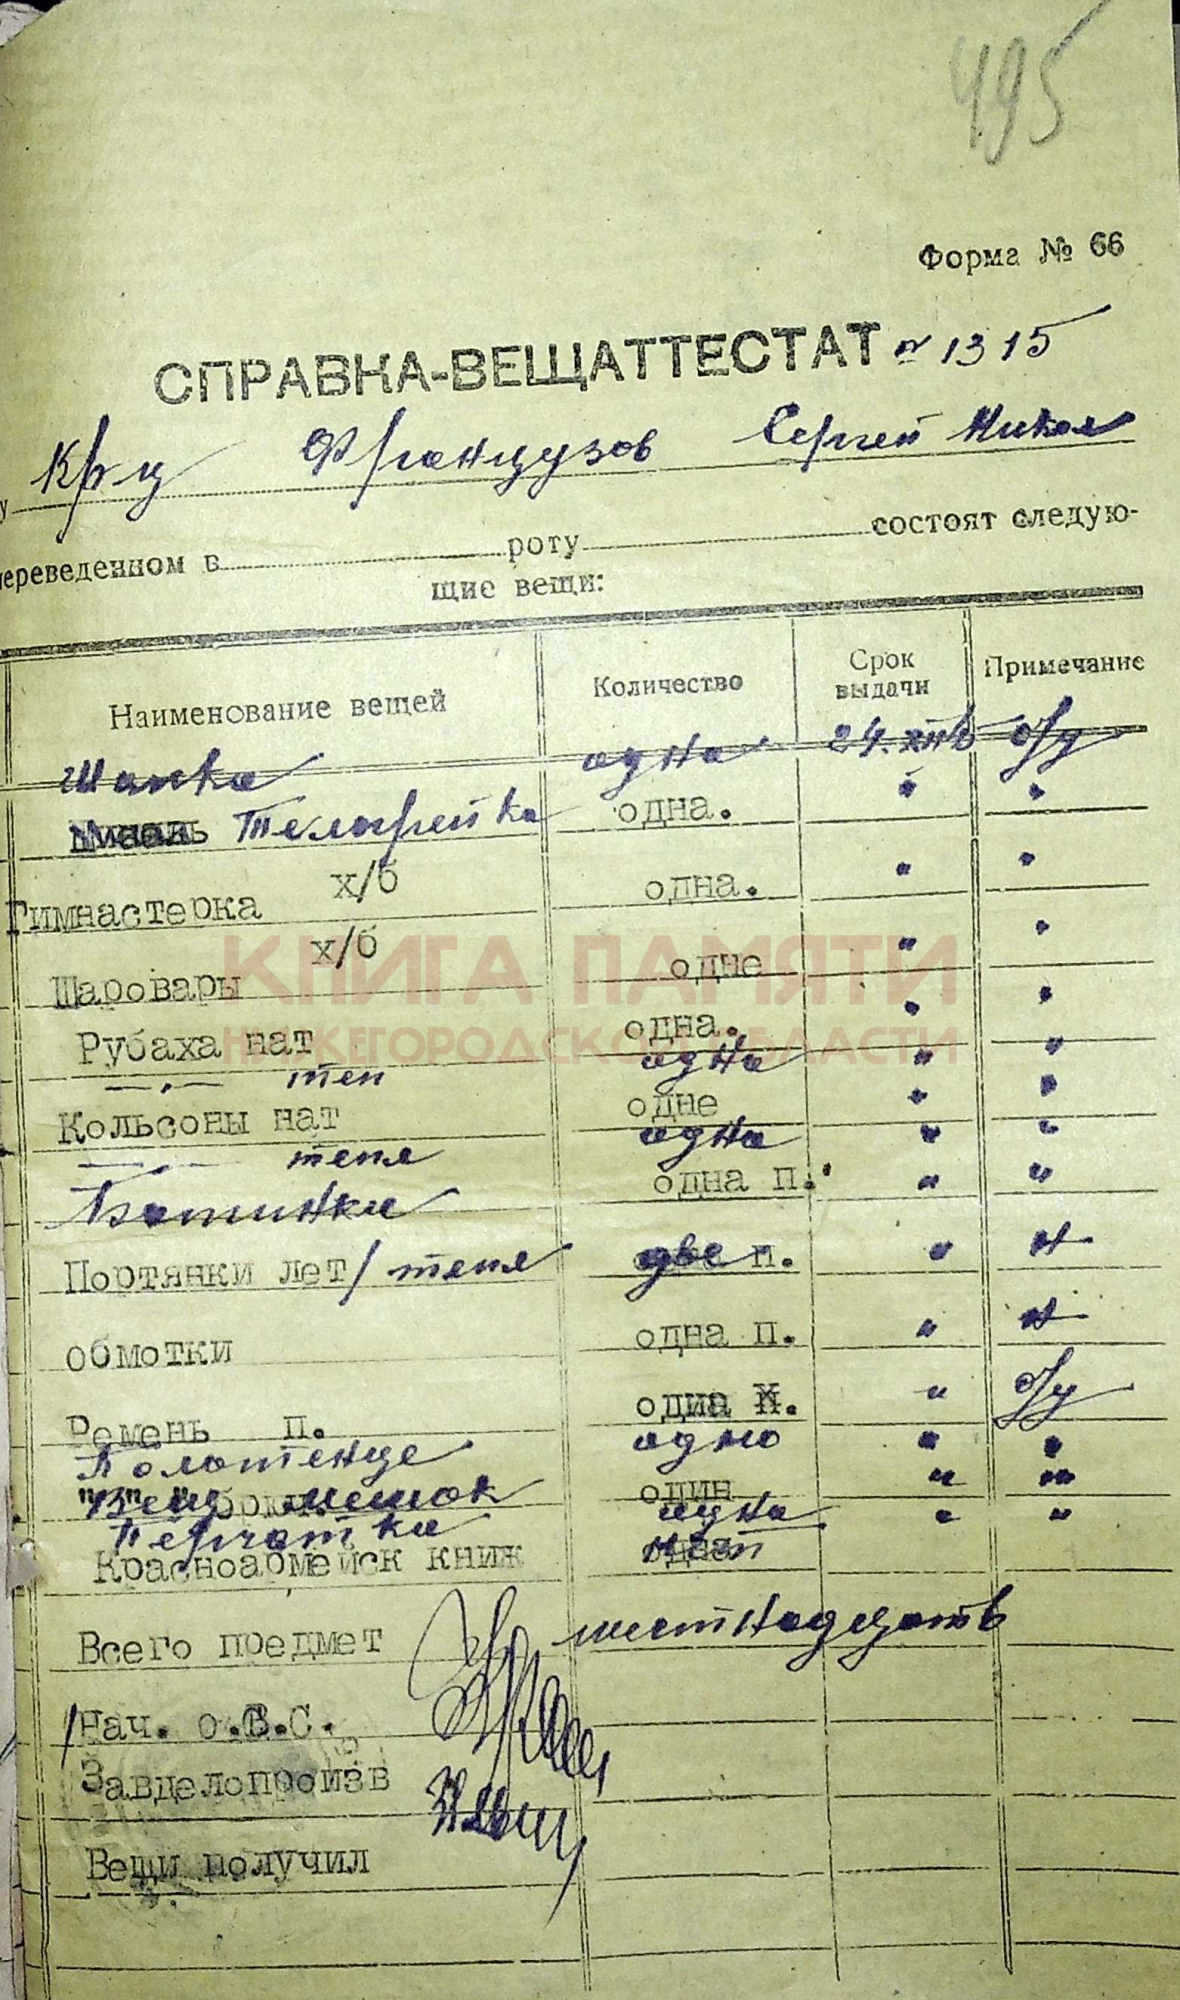 495
Форма № 66
СПРАВКА-ВЕЩАТТЕСТАТ № 1315
у Кр-ц Французов Сергей Никол
переведенном в роту состоят следую-
щие вещи:
Наименование вещей Количество Срок выдачи Примечание
Шапка одна 24. б/у
Телогрейка одна. " "
Гимнастерка х/б одна. " "
Шаровары х/б одне " "
КНИГА ПАМЯТИ
НИЖЕГОРОДСКОЙ ОБЛАСТИ
Рубаха нат одна. " "
—„— теп одна " "
Кольсоны нат одне " "
—„— тепл одна " "
Ботинки одна п. " "
Портянки лет/тепл две п. " н
обмотки одна п. " н
Ремень п. один " б/у
Полотенце одно " "
Вещ мешок один " "
Перчатки одна " "
Красноармейск книж
Всего предмет шестнадцать
Нач. О.В.С.
Завделопроизв
Вещи получил